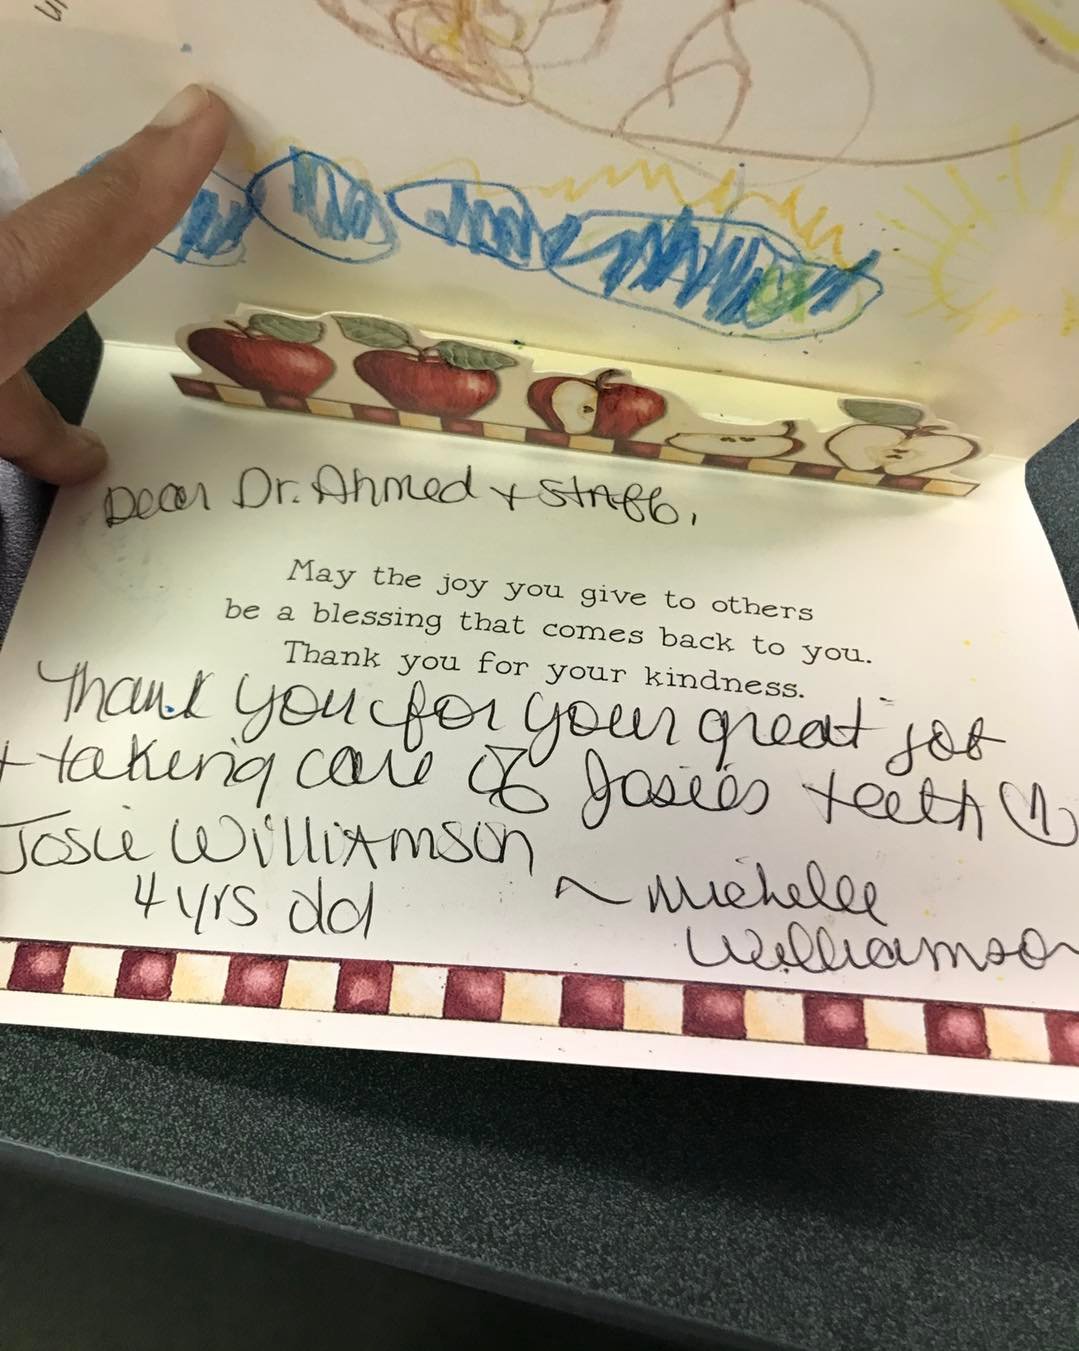 Dear Dr. Ahmed + Staff,
May the joy you give to others
be a blessing that comes back to you.
Thank you for your kindness.
Thank you for your great job
+ taking care of Josie's teeth
Josie Williamson
4 yrs old
~ Michelle
Williamson